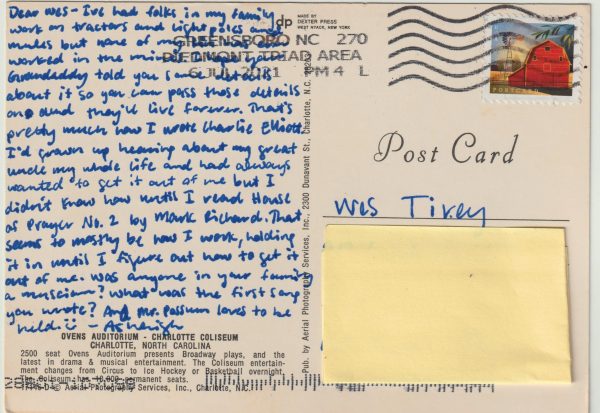 Dear Wes - I've had folks in my family
work on tractors and light poles and
mules but none of my
worked in the mines.
Granddaddy told you some
about it so you can pass those details
on and they'll live forever. That's
pretty much how I wrote Charlie Elliott.
I'd grown up hearing about my great
uncle my whole life and had always
wanted to get it out of me but I
didn't know how until I read House
of Prayer No. 2 by Mark Richard. That
seems to mostly be how I work, holding
it in until I figure out how to get it
out of me. Was anyone in your family
a musician? What was the first song
you wrote? And Mr. Possum loves to be
held - Ashleigh
OVENS AUDITORIUM - CHARLOTTE COLISEUM
CHARLOTTE, NORTH CAROLINA
2500 seat Ovens Auditorium presents Broadway plays, and the
latest in drama & musical entertainment. The Coliseum entertain-
ment changes from Circus to Ice Hockey or Basketball overnight.
The Coliseum has 13,000 permanent seats.
© Aerial Photography Services, Inc., Charlotte, N.C.
Pub. by Aerial Photography Services, Inc., 2300 Dunavant St., Charlotte, N.C.
dp
MADE BY
DEXTER PRESS
WEST NYACK, NEW YORK
GREENSBORO NC 270
PIEDMONT TRIAD AREA
6 JUL 2021 PM 4 L
POSTCARD
Post Card
Wes Tirey